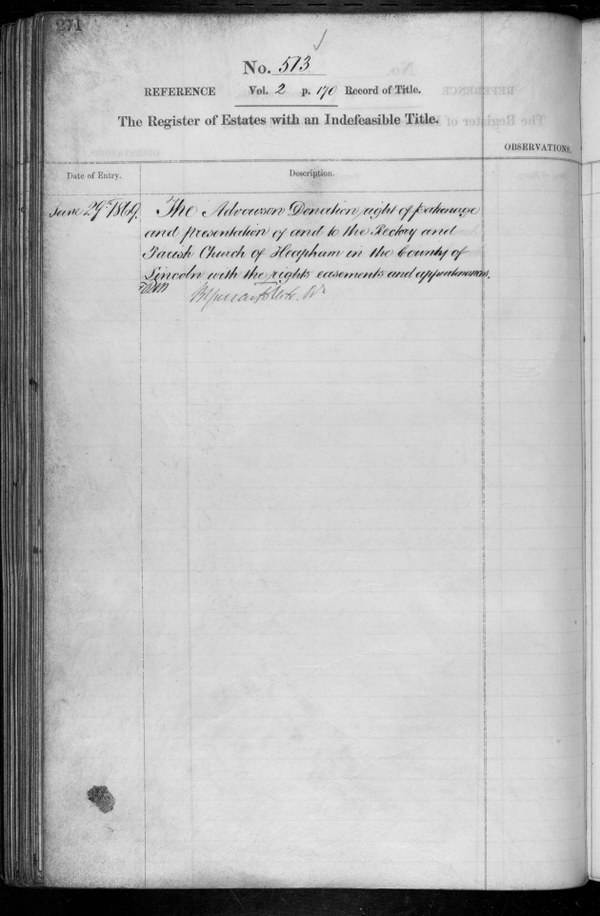 271
No. 513
REFERENCE Vol. 2 p. 170 Record of Title.
The Register of Estates with an Indefeasible Title.
OBSERVATIONS.
Date of Entry. Description.
June 29th 1869. The Advowson Donation right of patronage
and presentation of and to the Rectory and
Parish Church of Heapham in the County of
Lincoln with the rights easements and appurtenances.